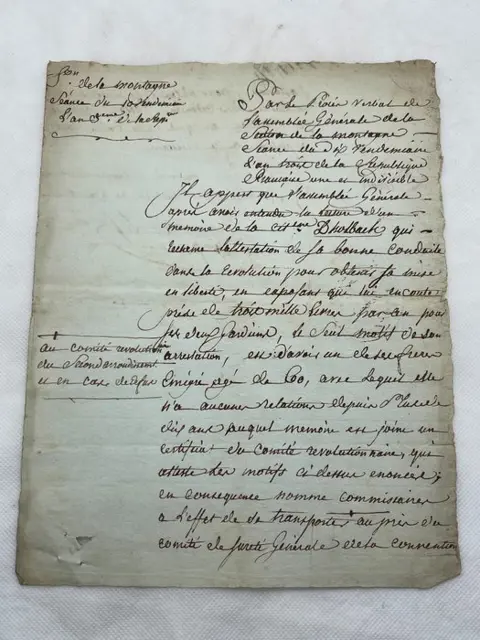 Son de la montagne
Séance du 10 vendemiaire
L'an 3eme de la Rque
Par le Procès verbal de
l'assemblée Générale de la
Section de la montagne
Séance du Dix Vendemiaire
L'an trois de la Republique
Française une et indivisible
Il appert que l'assemblée Générale
après avoir entendu la lecture d'un
memoire de la citene Dholback qui
reclame l'attestation de sa bonne conduite
dans la revolution pour obtenir sa mise
en liberté, en exposant qu'il lui en coute
près de trois mille livres par an pour
ses deux gardiens, le seul motif de son
arrestation, est d'avoir un de ses freres
Emigré agé de 60, avec lequel elle
n'a aucunes relations depuis plus de
dix ans auquel memoire est joint un
certifiat du Comité revolutionnaire, qui
atteste les motifs ci dessus enoncés;
en consequence nomme commissaires
a l'effet de se transporter au près du
comité de sureté Générale de la convention
au comité revolutionre
du Second arrondissement
et en cas de